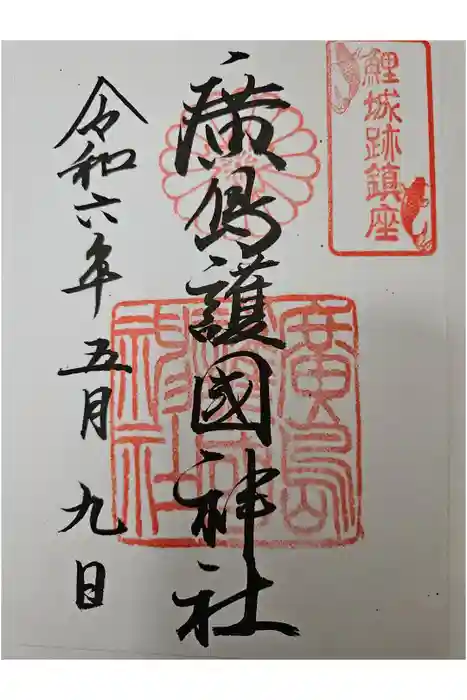 鯉城跡鎮座
廣島護國神社
廣島護國神社
令和六年五月九日